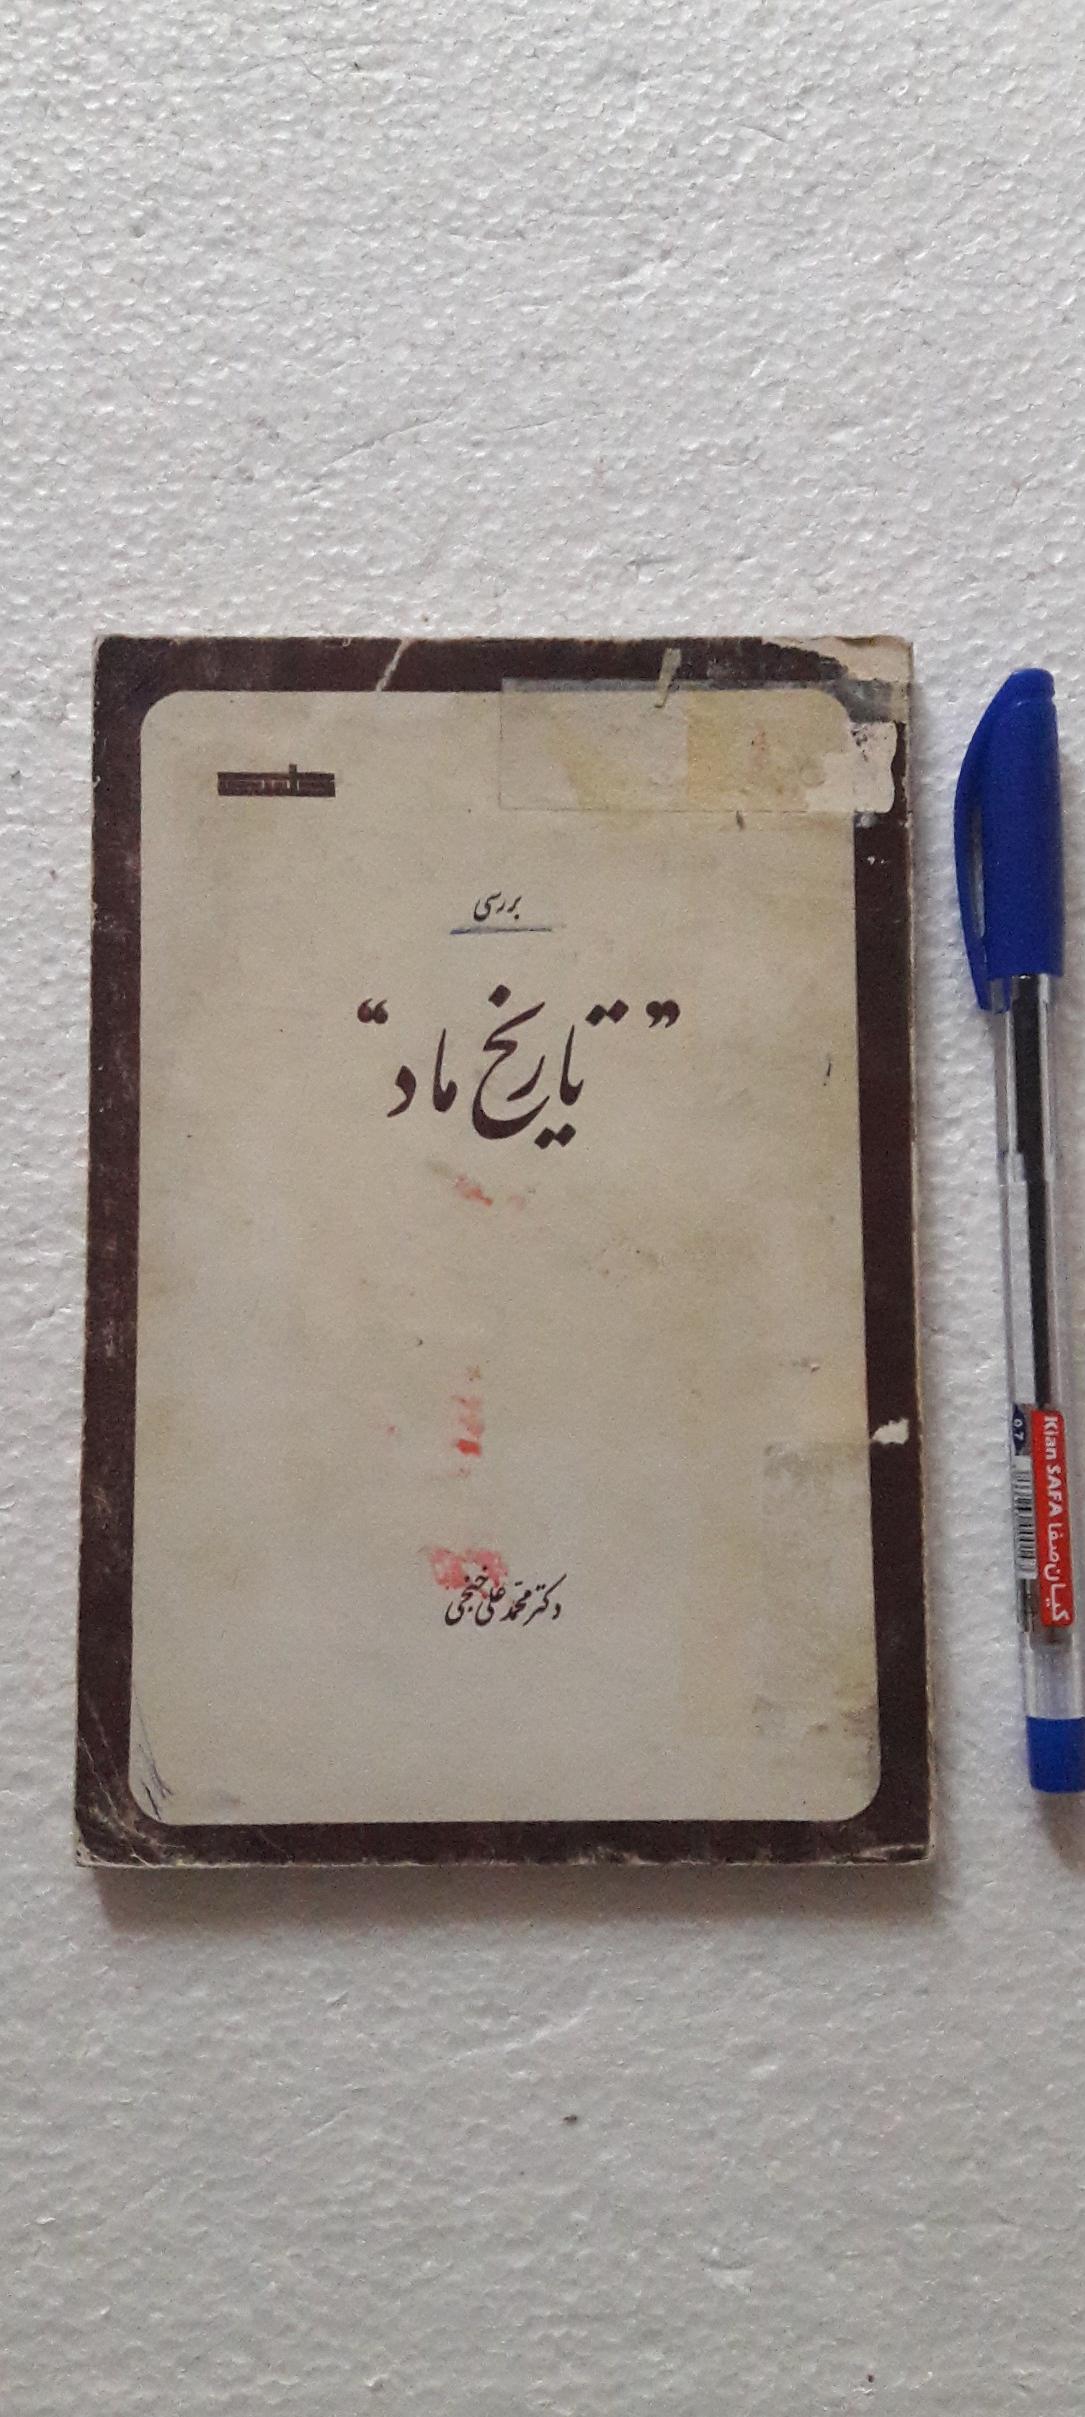 بررسی
” تاریخ ماد “
دکتر محمّد علی خنجی
Kian SAFA کیان صفا
0.7